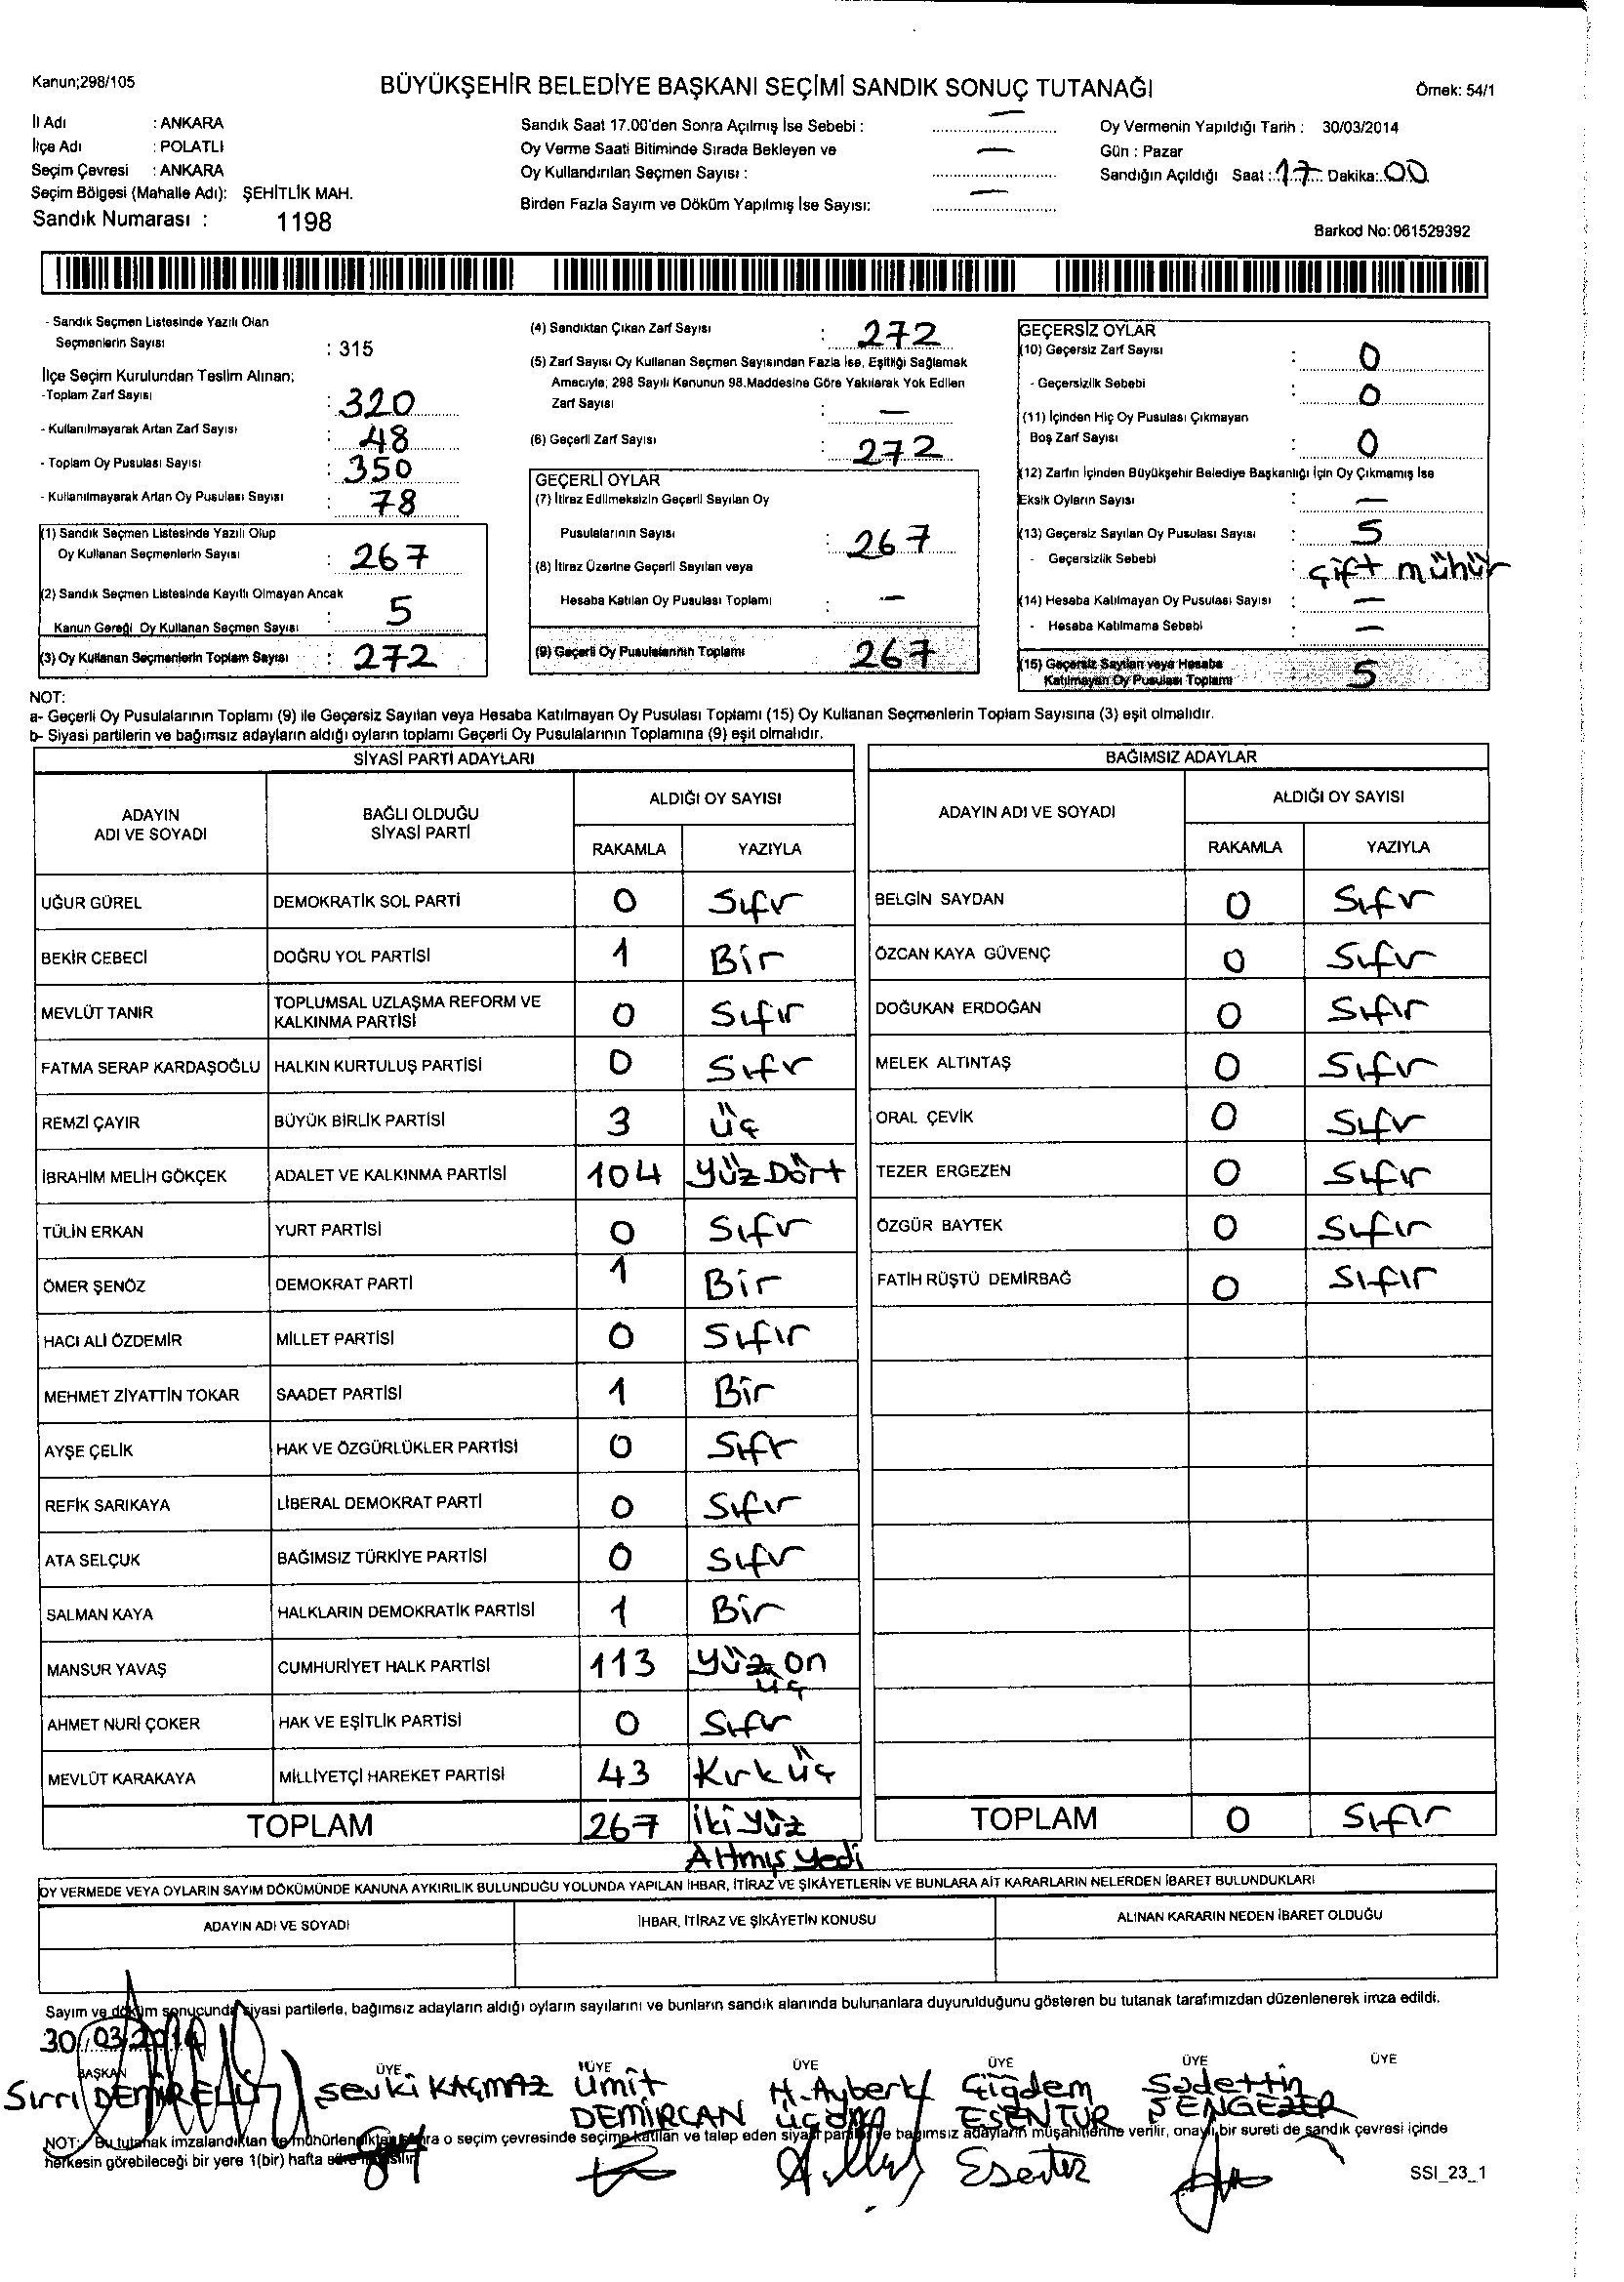 Kanun;298/105
BÜYÜKŞEHİR BELEDİYE BAŞKANI SEÇİMİ SANDIK SONUÇ TUTANAĞI
Örnek: 54/1
İl Adı : ANKARA
İlçe Adı : POLATLI
Seçim Çevresi : ANKARA
Seçim Bölgesi (Mahalle Adı): ŞEHİTLİK MAH.
Sandık Numarası : 1198
Sandık Saat 17.00'den Sonra Açılmış İse Sebebi : —
Oy Verme Saati Bitiminde Sırada Bekleyen ve
Oy Kullandırılan Seçmen Sayısı : —
Birden Fazla Sayım ve Döküm Yapılmış İse Sayısı: —
Oy Vermenin Yapıldığı Tarih : 30/03/2014
Gün : Pazar
Sandığın Açıldığı Saat : 17 Dakika: 00
Barkod No: 061529392
- Sandık Seçmen Listesinde Yazılı Olan
Seçmenlerin Sayısı : 315
İlçe Seçim Kurulundan Teslim Alınan;
-Toplam Zarf Sayısı : 320
- Kullanılmayarak Artan Zarf Sayısı : 48
- Toplam Oy Pusulası Sayısı : 350
- Kullanılmayarak Artan Oy Pusulası Sayısı : 78
(1) Sandık Seçmen Listesinde Yazılı Olup
Oy Kullanan Seçmenlerin Sayısı : 267
(2) Sandık Seçmen Listesinde Kayıtlı Olmayan Ancak
Kanun Gereği Oy Kullanan Seçmen Sayısı : 5
(3) Oy Kullanan Seçmenlerin Toplam Sayısı : 272
(4) Sandıktan Çıkan Zarf Sayısı : 272
(5) Zarf Sayısı Oy Kullanan Seçmen Sayısından Fazla İse, Eşitliği Sağlamak
Amacıyla; 298 Sayılı Kanunun 98.Maddesine Göre Yakılarak Yok Edilen
Zarf Sayısı : —
(6) Geçerli Zarf Sayısı : 272
GEÇERLİ OYLAR
(7) İtiraz Edilmeksizin Geçerli Sayılan Oy
Pusulalarının Sayısı : 267
(8) İtiraz Üzerine Geçerli Sayılan veya
Hesaba Katılan Oy Pusulası Toplamı : —
(9) Geçerli Oy Pusulalarının Toplamı 267
GEÇERSİZ OYLAR
(10) Geçersiz Zarf Sayısı : 0
- Geçersizlik Sebebi : 0
(11) İçinden Hiç Oy Pusulası Çıkmayan
Boş Zarf Sayısı : 0
(12) Zarfın İçinden Büyükşehir Belediye Başkanlığı İçin Oy Çıkmamış İse
Eksik Oyların Sayısı : —
(13) Geçersiz Sayılan Oy Pusulası Sayısı : 5
- Geçersizlik Sebebi : Çift mühür
(14) Hesaba Katılmayan Oy Pusulası Sayısı : —
- Hesaba Katılmama Sebebi : —
(15) Geçersiz Sayılan veya Hesaba
Katılmayan Oy Pusulası Toplamı 5
NOT:
a- Geçerli Oy Pusulalarının Toplamı (9) ile Geçersiz Sayılan veya Hesaba Katılmayan Oy Pusulası Toplamı (15) Oy Kullanan Seçmenlerin Toplam Sayısına (3) eşit olmalıdır.
b- Siyasi partilerin ve bağımsız adayların aldığı oyların toplamı Geçerli Oy Pusulalarının Toplamına (9) eşit olmalıdır.
SİYASİ PARTİ ADAYLARI
ADAYIN ADI VE SOYADI BAĞLI OLDUĞU SİYASİ PARTİ ALDIĞI OY SAYISI
RAKAMLA YAZIYLA
UĞUR GÜREL DEMOKRATİK SOL PARTİ 0 Sıfır
BEKİR CEBECİ DOĞRU YOL PARTİSİ 1 Bir
MEVLÜT TANIR TOPLUMSAL UZLAŞMA REFORM VE KALKINMA PARTİSİ 0 Sıfır
FATMA SERAP KARDAŞOĞLU HALKIN KURTULUŞ PARTİSİ 0 Sıfır
REMZİ ÇAYIR BÜYÜK BİRLİK PARTİSİ 3 Üç
İBRAHİM MELİH GÖKÇEK ADALET VE KALKINMA PARTİSİ 104 Yüz Dört
TÜLİN ERKAN YURT PARTİSİ 0 Sıfır
ÖMER ŞENÖZ DEMOKRAT PARTİ 1 Bir
HACI ALİ ÖZDEMİR MİLLET PARTİSİ 0 Sıfır
MEHMET ZİYATTİN TOKAR SAADET PARTİSİ 1 Bir
AYŞE ÇELİK HAK VE ÖZGÜRLÜKLER PARTİSİ 0 Sıfır
REFİK SARIKAYA LİBERAL DEMOKRAT PARTİ 0 Sıfır
ATA SELÇUK BAĞIMSIZ TÜRKİYE PARTİSİ 0 Sıfır
SALMAN KAYA HALKLARIN DEMOKRATİK PARTİSİ 1 Bir
MANSUR YAVAŞ CUMHURİYET HALK PARTİSİ 113 Yüz on üç
AHMET NURİ ÇOKER HAK VE EŞİTLİK PARTİSİ 0 Sıfır
MEVLÜT KARAKAYA MİLLİYETÇİ HAREKET PARTİSİ 43 Kırk üç
TOPLAM 267 İki yüz
Altmış yedi
BAĞIMSIZ ADAYLAR
ADAYIN ADI VE SOYADI ALDIĞI OY SAYISI
RAKAMLA YAZIYLA
BELGİN SAYDAN 0 Sıfır
ÖZCAN KAYA GÜVENÇ 0 Sıfır
DOĞUKAN ERDOĞAN 0 Sıfır
MELEK ALTINTAŞ 0 Sıfır
ORAL ÇEVİK 0 Sıfır
TEZER ERGEZEN 0 Sıfır
ÖZGÜR BAYTEK 0 Sıfır
FATİH RÜŞTÜ DEMİRBAĞ 0 Sıfır
TOPLAM 0 Sıfır
OY VERMEDE VEYA OYLARIN SAYIM DÖKÜMÜNDE KANUNA AYKIRILIK BULUNDUĞU YOLUNDA YAPILAN İHBAR, İTİRAZ VE ŞİKÂYETLERİN VE BUNLARA AİT KARARLARIN NELERDEN İBARET BULUNDUKLARI
ADAYIN ADI VE SOYADI İHBAR, İTİRAZ VE ŞİKÂYETİN KONUSU ALINAN KARARIN NEDEN İBARET OLDUĞU
Sayım ve döküm sonucunda siyasi partilerle, bağımsız adayların aldığı oyların sayılarını ve bunların sandık alanında bulunanlara duyurulduğunu gösteren bu tutanak tarafımızdan düzenlenerek imza edildi.
30/03/2014
BAŞKAN ÜYE ÜYE ÜYE ÜYE ÜYE ÜYE
Sırrı DEMİRELLİ Şevki KAÇMAZ Ümit DEMİRCAN H. Ayberk Çiğdem ESENTÜR Sadettin ŞENGEZER
NOT: Bu tutanak imzalandıktan ve mühürlendikten sonra o seçim çevresinde seçime katılan ve talep eden siyasi partiler ve bağımsız adayların müşahitlerine verilir, onaylı bir sureti de sandık çevresi içinde
herkesin görebileceği bir yere 1(bir) hafta süre asılır.
SSI_23_1